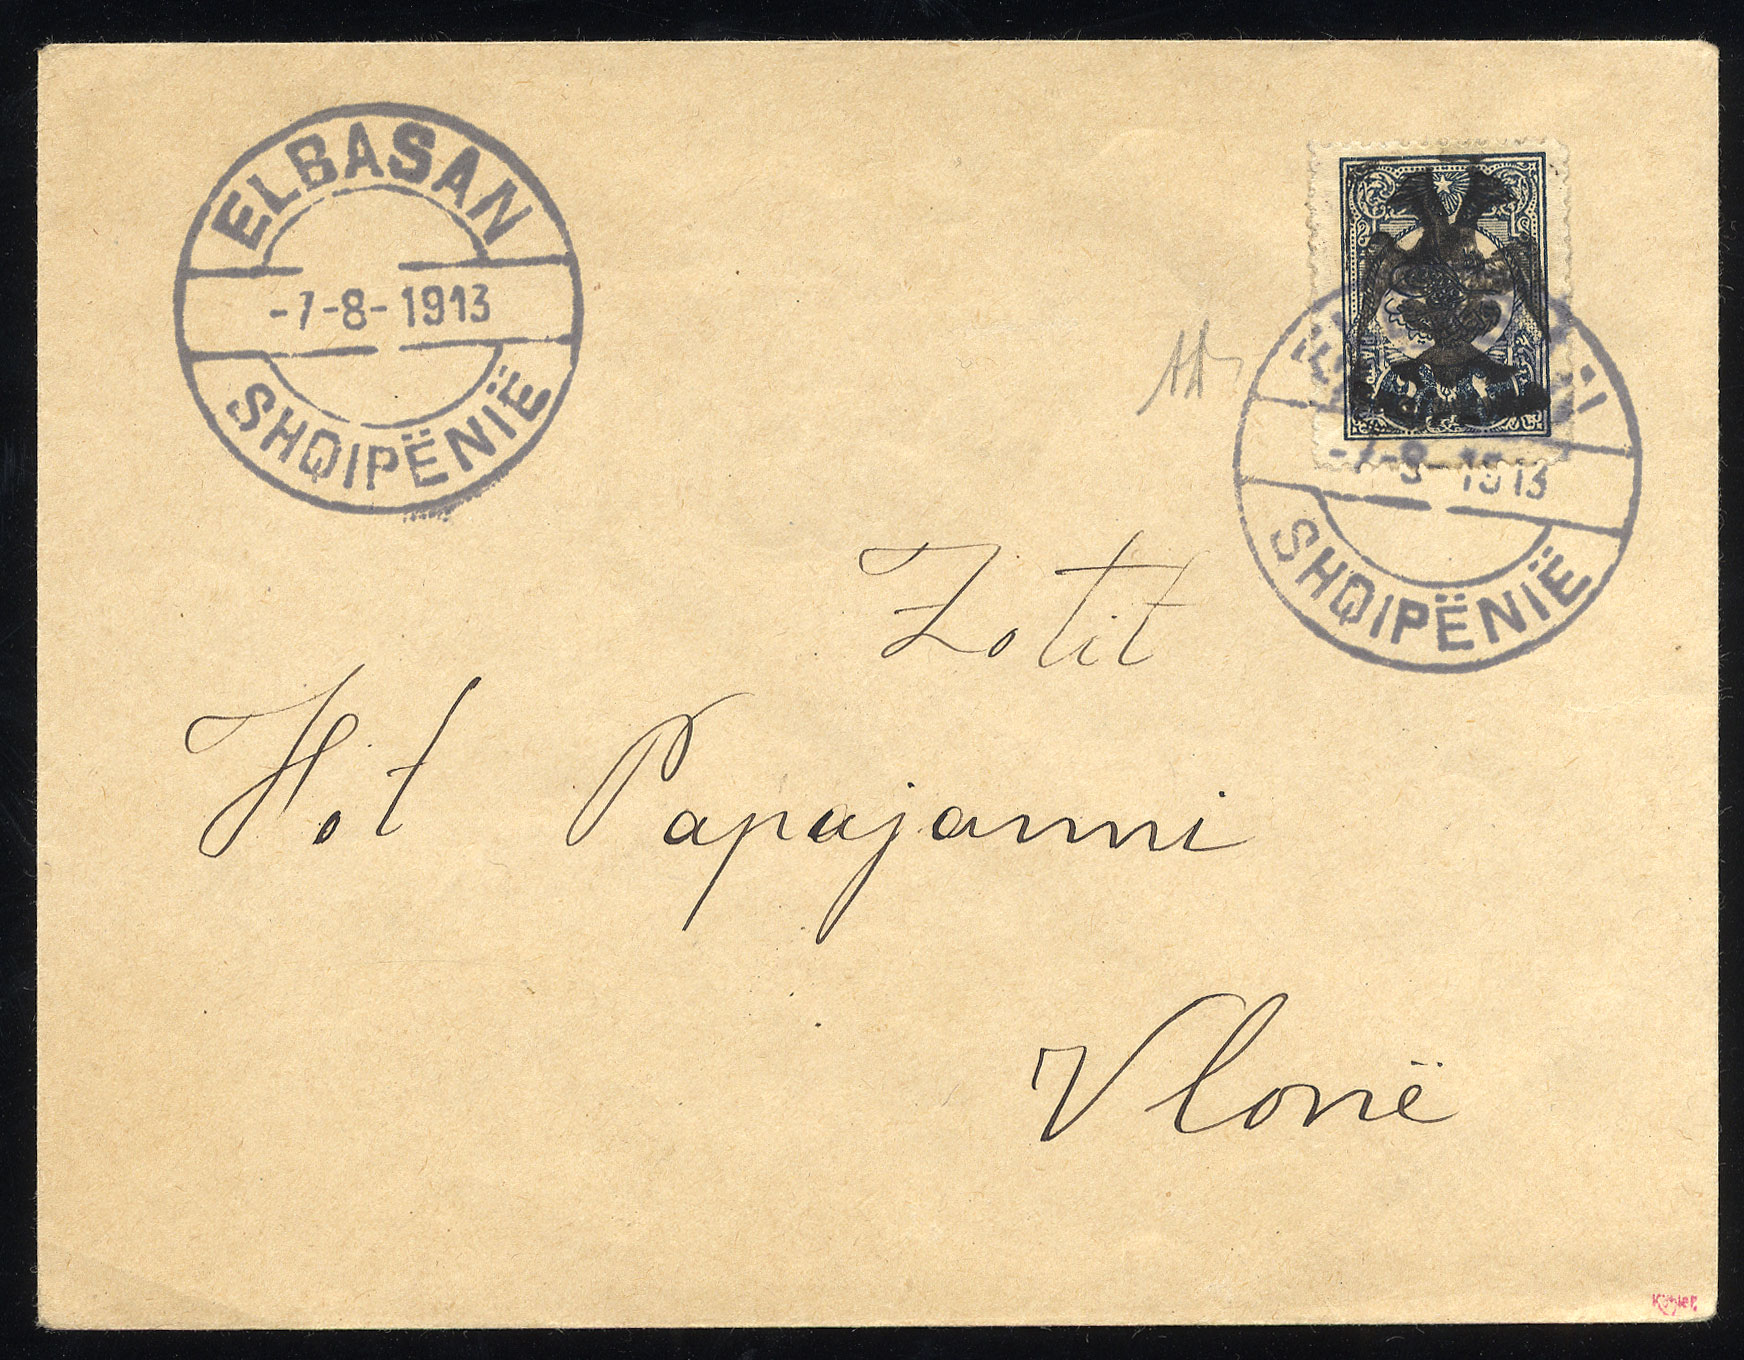 ELBASAN
-7-8-1913
SHQIPËNIË
-7-8-1913
SHQIPËNIË
Zotit
Hot Papajanni
Vlonë
Köhler